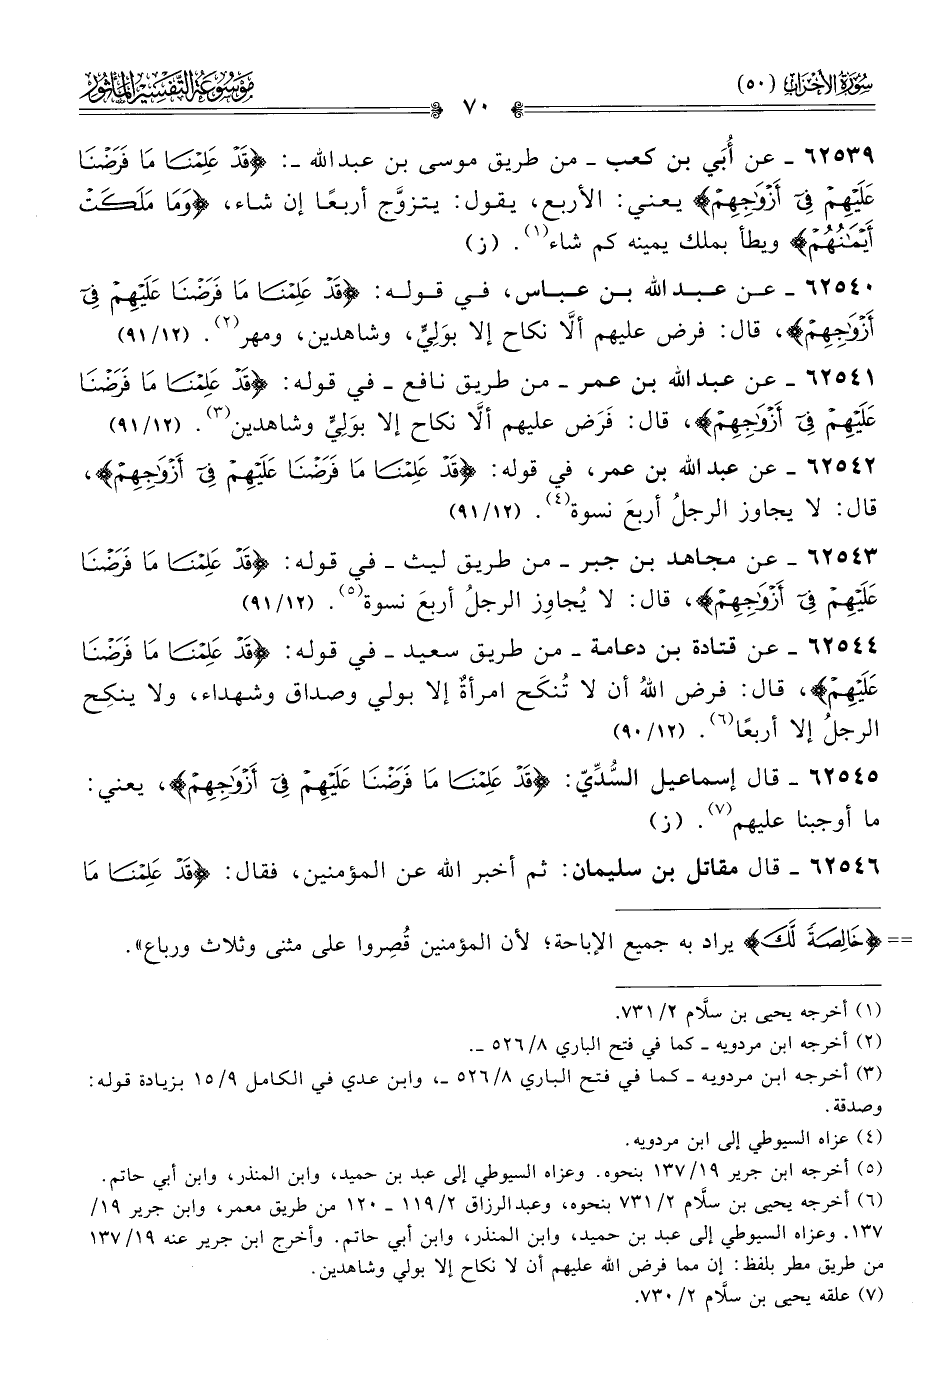 سورة الأحزاب (٥٠)
موسوعة التفسير المأثور
٧٠
٦٢٥٣٩ ـ عن أُبَي بن كعب ـ من طريق موسى بن عبدالله ـ: ﴿قَدْ عَلِمْنَا مَا فَرَضْنَا
عَلَيْهِمْ فِيٓ أَزْوَٰجِهِمْ﴾ يعني: الأربع، يقول: يتزوَّج أربعًا إن شاء، ﴿وَمَا مَلَكَتْ
أَيْمَٰنُهُمْ﴾ ويطأ بملك يمينه كم شاء(١). (ز)
٦٢٥٤٠ ـ عن عبدالله بن عباس، في قوله: ﴿قَدْ عَلِمْنَا مَا فَرَضْنَا عَلَيْهِمْ فِيٓ
أَزْوَٰجِهِمْ﴾، قال: فرض عليهم ألَّا نكاح إلا بوَلِيٍّ، وشاهدين، ومهر(٢). (٩١/١٢)
٦٢٥٤١ ـ عن عبدالله بن عمر ـ من طريق نافع ـ في قوله: ﴿قَدْ عَلِمْنَا مَا فَرَضْنَا
عَلَيْهِمْ فِيٓ أَزْوَٰجِهِمْ﴾، قال: فَرَض عليهم ألَّا نكاح إلا بوَلِيٍّ وشاهدين(٣). (٩١/١٢)
٦٢٥٤٢ ـ عن عبدالله بن عمر، في قوله: ﴿قَدْ عَلِمْنَا مَا فَرَضْنَا عَلَيْهِمْ فِيٓ أَزْوَٰجِهِمْ﴾،
قال: لا يجاوز الرجلُ أربعَ نسوة(٤). (٩١/١٢)
٦٢٥٤٣ ـ عن مجاهد بن جبر ـ من طريق ليث ـ في قوله: ﴿قَدْ عَلِمْنَا مَا فَرَضْنَا
عَلَيْهِمْ فِيٓ أَزْوَٰجِهِمْ﴾، قال: لا يُجاوِز الرجلُ أربعَ نسوة(٥). (٩١/١٢)
٦٢٥٤٤ ـ عن قتادة بن دعامة ـ من طريق سعيد ـ في قوله: ﴿قَدْ عَلِمْنَا مَا فَرَضْنَا
عَلَيْهِمْ﴾، قال: فرض اللهُ أن لا تُنكَح امرأةٌ إلا بولي وصداق وشهداء، ولا ينكِح
الرجلُ إلا أربعًا(٦). (٩٠/١٢)
٦٢٥٤٥ ـ قال إسماعيل السُّدِّيّ: ﴿قَدْ عَلِمْنَا مَا فَرَضْنَا عَلَيْهِمْ فِيٓ أَزْوَٰجِهِمْ﴾، يعني:
ما أوجبنا عليهم(٧). (ز)
٦٢٥٤٦ ـ قال مقاتل بن سليمان: ثم أخبر الله عن المؤمنين، فقال: ﴿قَدْ عَلِمْنَا مَا
== ﴿خَالِصَةً لَّكَ﴾ يراد به جميع الإباحة؛ لأن المؤمنين قُصِروا على مثنى وثلاث ورباع».
(١) أخرجه يحيى بن سلَّام ٢/ ٧٣١.
(٢) أخرجه ابن مردويه ـ كما في فتح الباري ٨/ ٥٢٦ ـ.
(٣) أخرجه ابن مردويه ـ كما في فتح الباري ٨/ ٥٢٦ ـ، وابن عدي في الكامل ٩/ ١٥ بزيادة قوله:
وصدقة.
(٤) عزاه السيوطي إلى ابن مردويه.
(٥) أخرجه ابن جرير ١٩/ ١٣٧ بنحوه. وعزاه السيوطي إلى عبد بن حميد، وابن المنذر، وابن أبي حاتم.
(٦) أخرجه يحيى بن سلَّام ٢/ ٧٣١ بنحوه، وعبدالرزاق ٢/ ١١٩ ـ ١٢٠ من طريق معمر، وابن جرير ١٩/
١٣٧. وعزاه السيوطي إلى عبد بن حميد، وابن المنذر، وابن أبي حاتم. وأخرج ابن جرير عنه ١٩/ ١٣٧
من طريق مطر بلفظ: إن مما فرض الله عليهم أن لا نكاح إلا بولي وشاهدين.
(٧) علقه يحيى بن سلَّام ٢/ ٧٣٠.